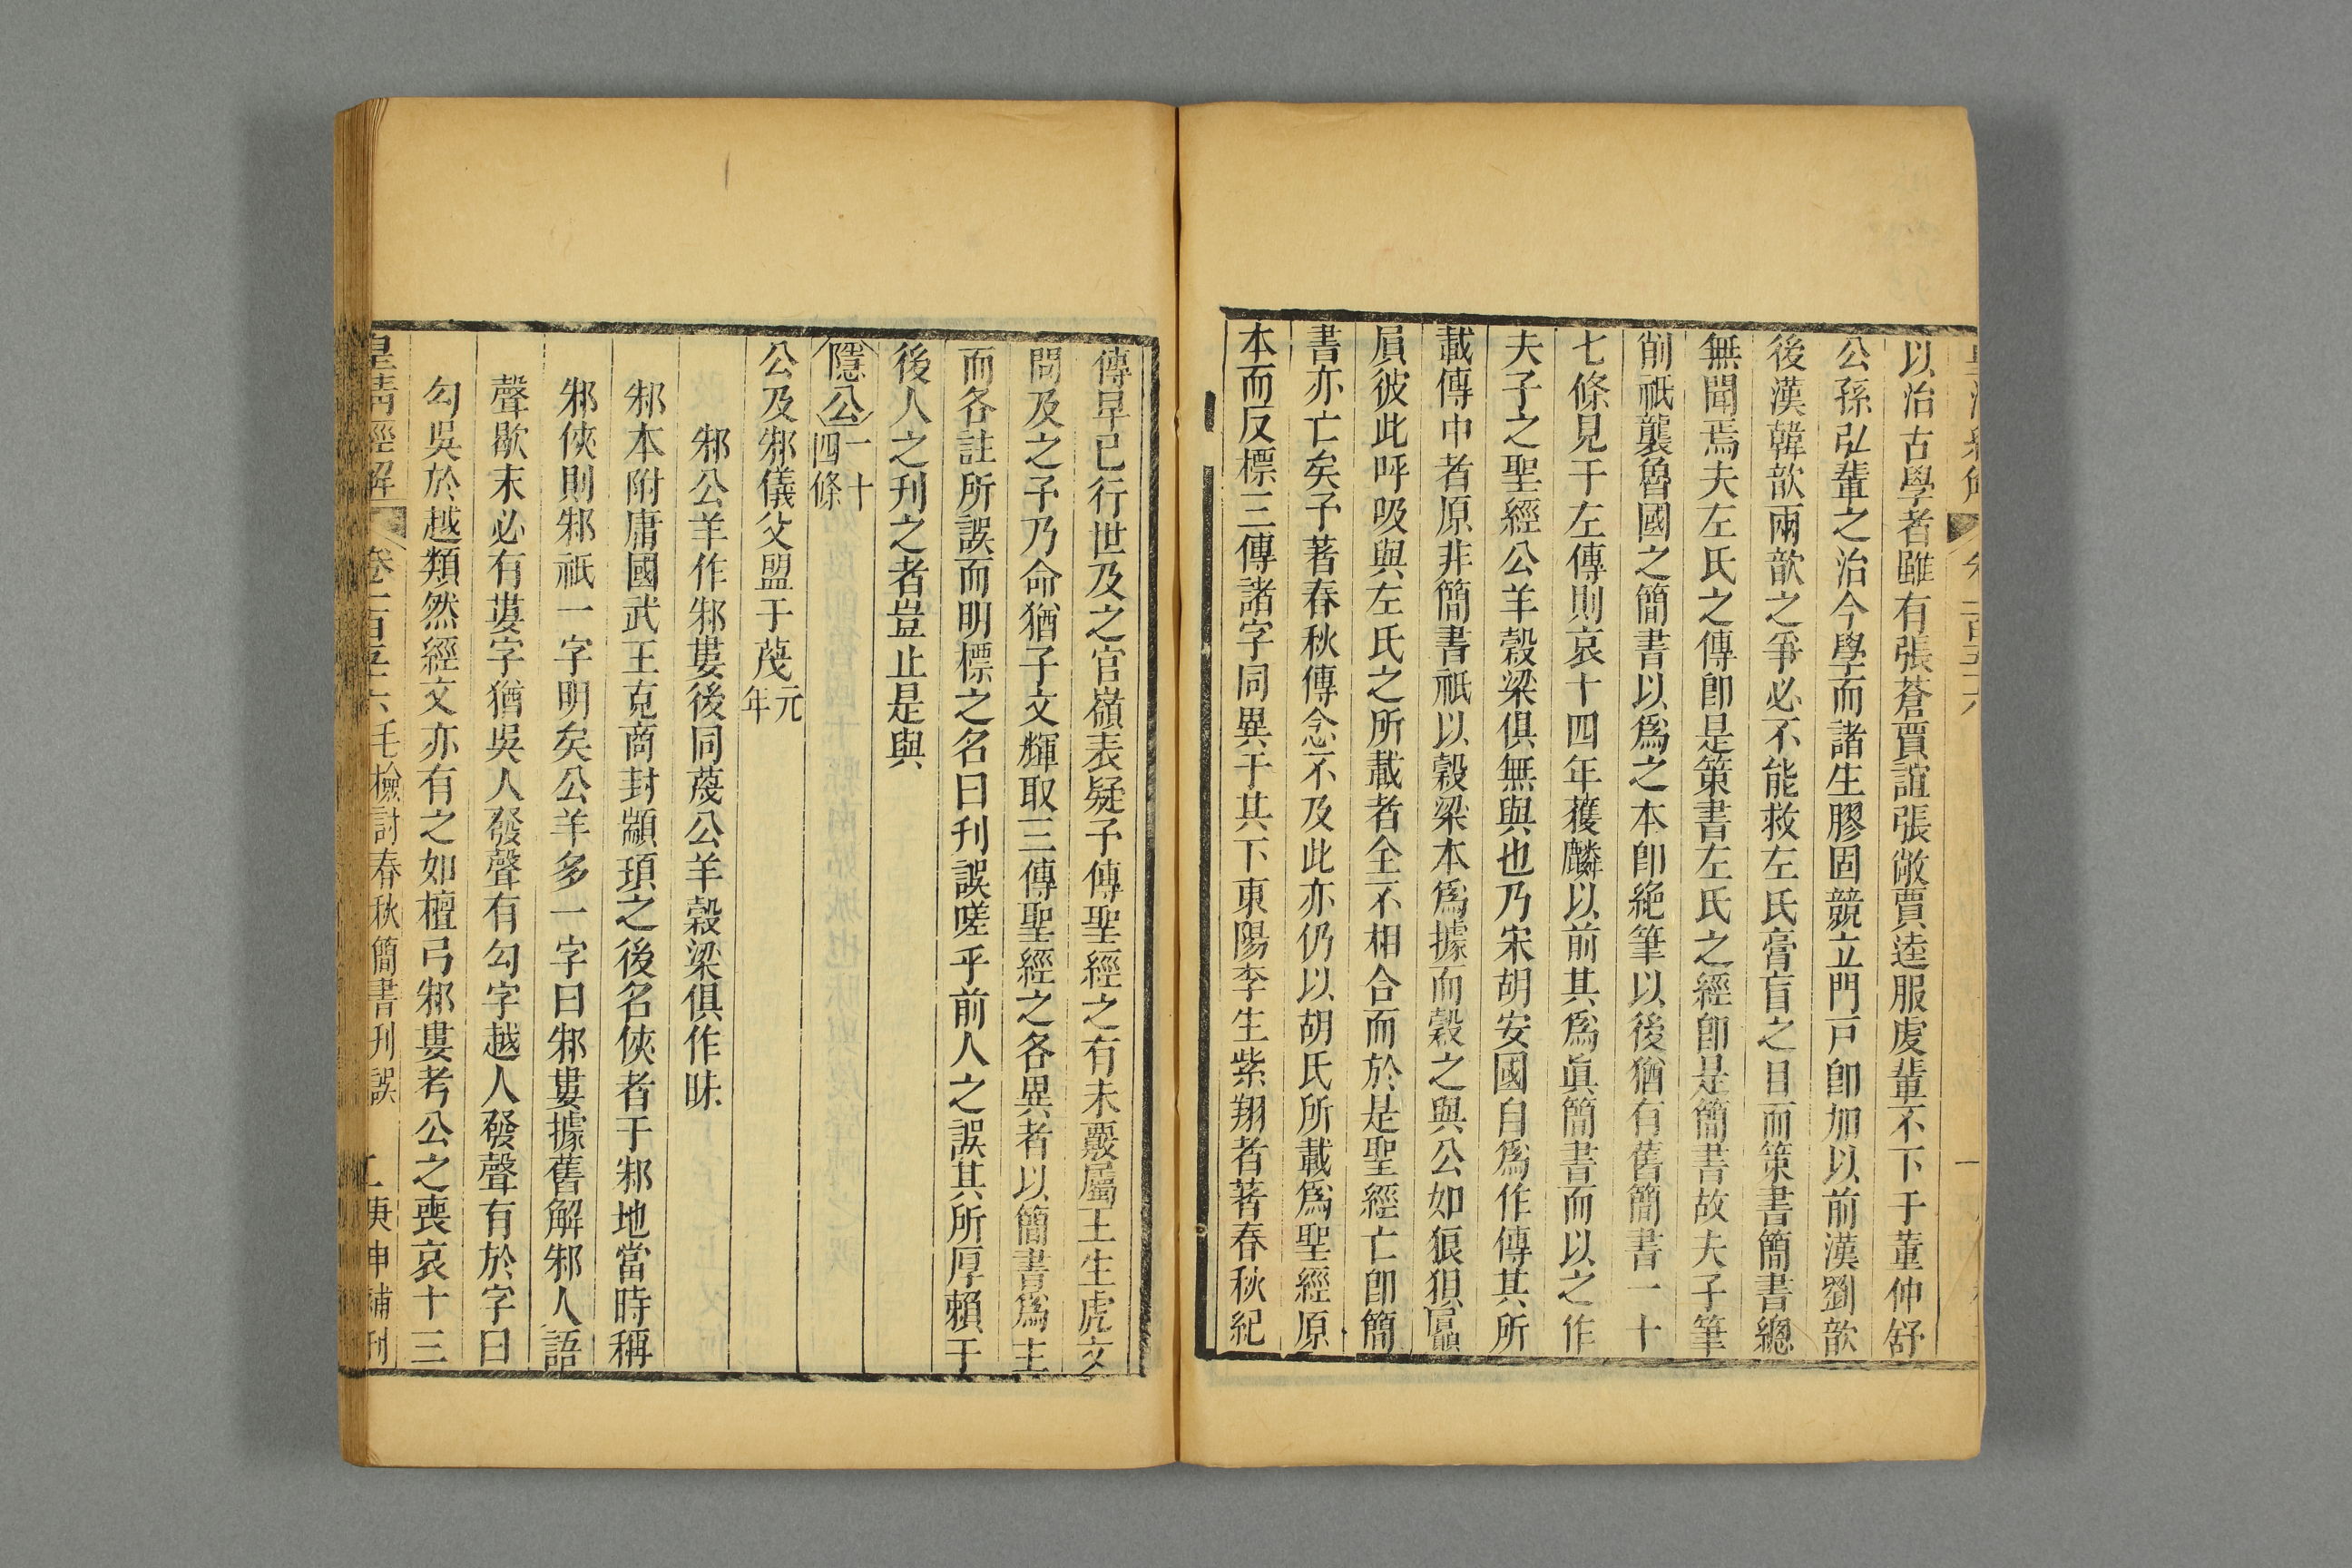 以治古學者雖有張蒼賈誼張敞賈逵服虔輩不下于董仲舒
公孫弘輩之治今學而諸生膠固競立門戸卽加以前漢劉歆
後漢韓歆兩歆之爭必不能救左氏膏盲之目而策書簡書總
無聞焉夫左氏之傳卽是策書左氏之經卽是簡書故夫子筆
削祇襲魯國之簡書以爲之本卽絶筆以後猶有舊簡書一十
七條見于左傳則哀十四年獲麟以前其爲眞簡書而以之作
夫子之聖經公羊穀梁俱無與也乃宋胡安國自爲作傳其所
載傳中者原非簡書祇以穀梁本爲據而穀之與公如狼狽屭
屓彼此呼吸與左氏之所載者全不相合而於是聖經亡卽簡
書亦亡矣予著春秋傳念不及此亦仍以胡氏所載爲聖經原
本而反標三傳諸字同異于其下東陽李生紫翔者著春秋紀
傳早已行世及之官嶺表疑予傳聖經之有未覈屬王生虎文
問及之予乃命猶子文輝取三傳聖經之各異者以簡書爲主
而各註所誤而明標之名曰刊誤嗟乎前人之誤其所厚賴于
後人之刊之者豈止是與
隱公一十四條
公及邾儀父盟于蔑元年
邾公羊作邾婁後同蔑公羊穀梁俱作昧
邾本附庸國武王克商封顓頊之後名俠者于邾地當時稱
邾俠則邾祇一字明矣公羊多一字曰邾婁據舊解邾人語
聲歇末必有婁字猶吳人發聲有勾字越人發聲有於字曰
勾吳於越類然經文亦有之如檀弓邾婁考公之喪哀十三
皇清經解 卷一百五十六 毛檢討春秋簡書刊誤 二 庚申補刊